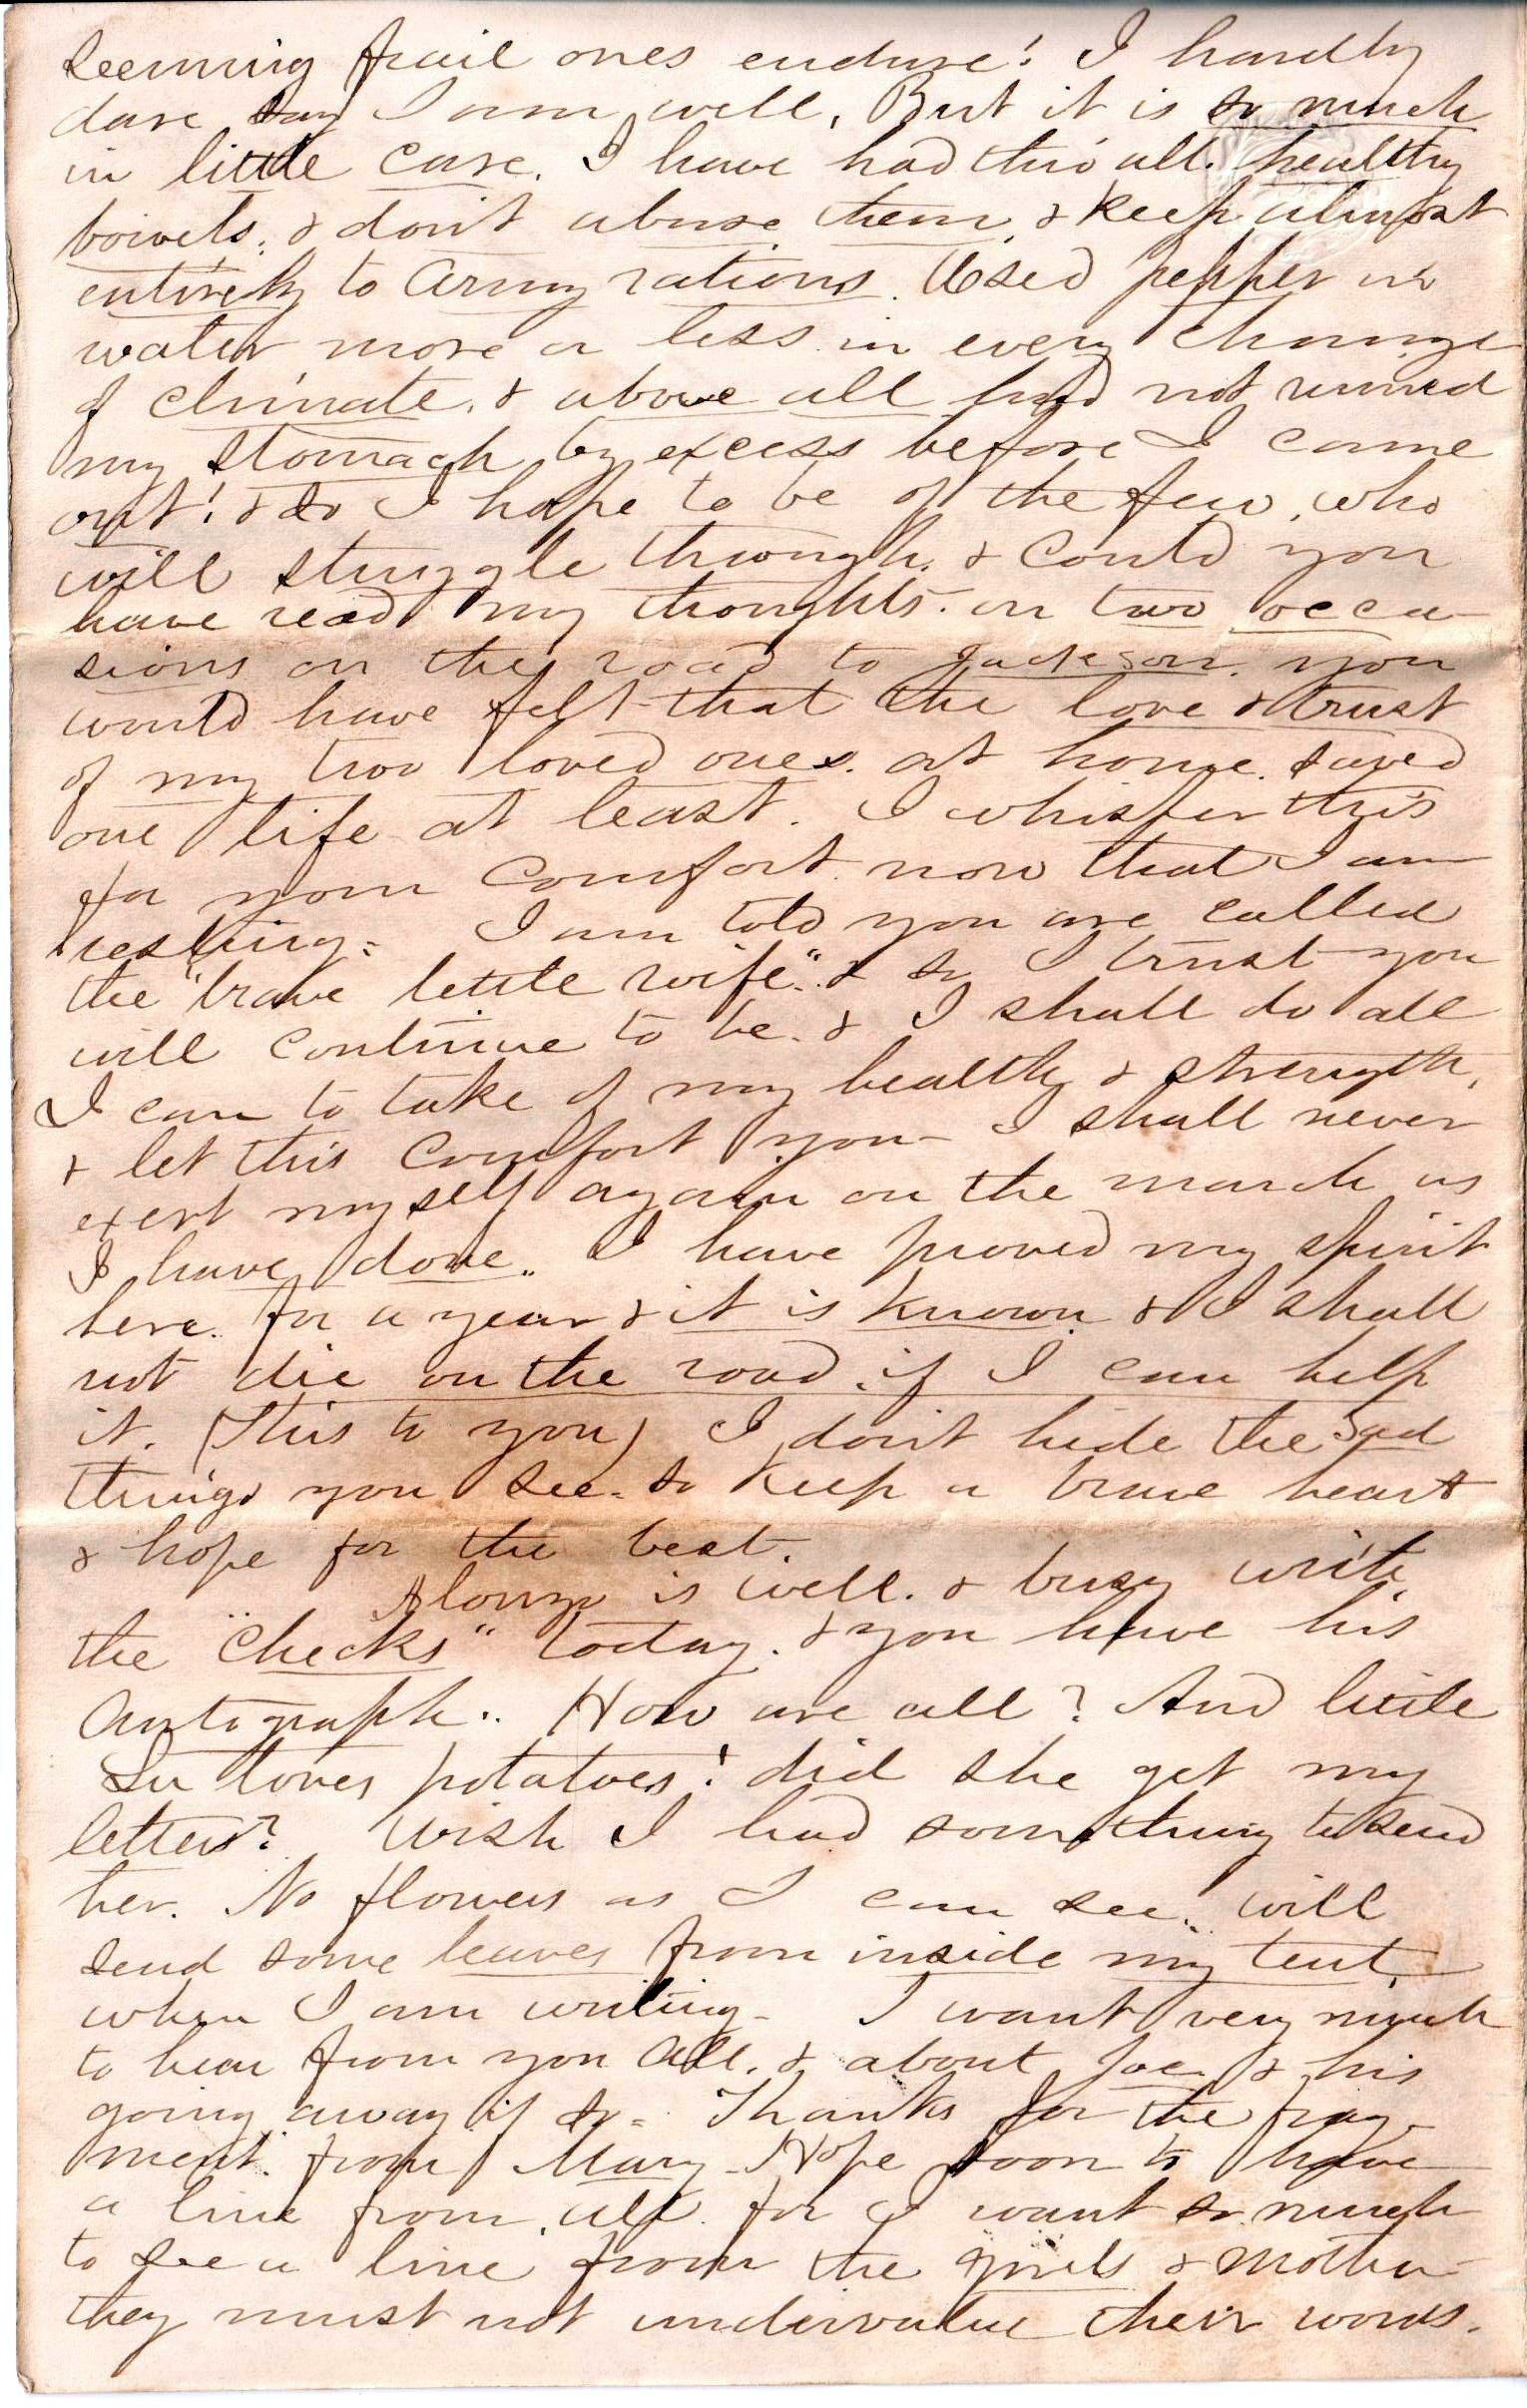 seeming frail ones endure! I hardly
dare say I am well, But it is so much
in little care. I have had thro' all healthy
bowels, & don't abuse them, & keep almost
entirely to army rations. Used pepper in
water more or less in every change
of climate, & above all had not ruined
my stomach by excess before I came
out! & so I hope to be of the few, who
will struggle through, & could you
have read my thoughts on two occa-
sions on the road to Jackson, you
would have felt that the love & trust
of my two loved ones at home saved
one life at least. I whisper this
for your comfort now that I am
resting. I am told you are called
the "brave little wife" & so I trust you
will continue to be. & I shall do all
I can to take of my health & strength,
& let this comfort you - I shall never
exert myself again on the march as
I have done. I have proved my spirit
here for a year & it is known & I shall
not die on the road, if I can help
it. (This to you) I don't hide the sad
things you see. so keep a brave heart
& hope for the best.
Alonzo is well. & busy write.
the "checks" today. & you have his
autograph.. How are all? And little
Su loves potatoes! did she get my
letter? Wish I had something to send
her. No flowers as I can see. will
send some leaves from inside my tent,
when I am writing - I want very much
to hear from you all. & about Joe & his
going away if so - Thanks for the frag-
ment from Mary - Hope soon to have
a line from all for I want so much
to see a line from the girls & mother
they must not undervalue their words.